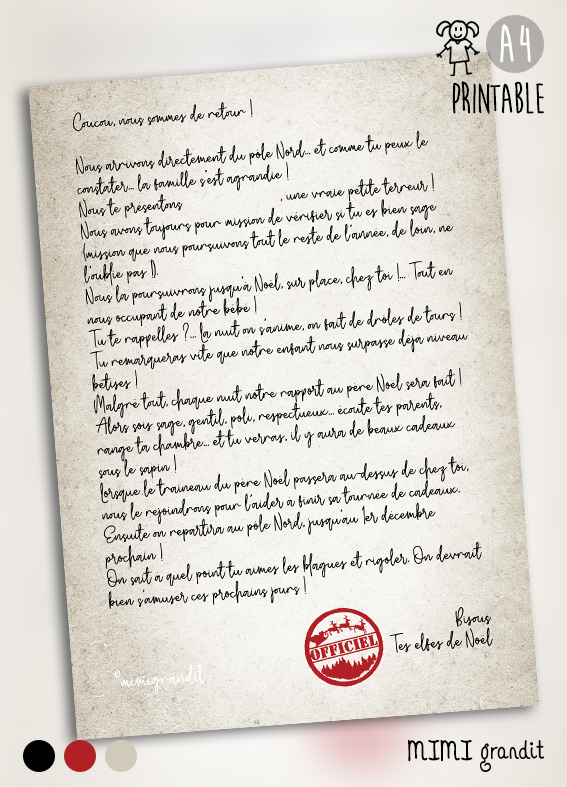 A4
PRINTABLE
Coucou, nous sommes de retour !
Nous arrivons directement du pôle Nord... et comme tu peux le
constater... la famille s'est agrandie !
Nous te présentons , une vraie petite terreur !
Nous avons toujours pour mission de vérifier si tu es bien sage
(mission que nous poursuivons tout le reste de l'année, de loin, ne
l'oublie pas !).
Nous la poursuivrons jusqu'à Noël, sur place, chez toi !... Tout en
nous occupant de notre bébé !
Tu te rappelles ?... La nuit on s'anime, on fait de drôles de tours !
Tu remarqueras vite que notre enfant nous surpasse déjà niveau
bêtises !
Malgré tout, chaque nuit notre rapport au père Noël sera fait !
Alors sois sage, gentil, poli, respectueux... écoute tes parents,
range ta chambre... et tu verras, il y aura de beaux cadeaux
sous le sapin !
Lorsque le traineau du père Noël passera au-dessus de chez toi,
nous le rejoindrons pour l'aider à finir sa tournée de cadeaux.
Ensuite on repartira au pôle Nord, jusqu'au 1er décembre
prochain !
On sait à quel point tu aimes les blagues et rigoler. On devrait
bien s'amuser ces prochains jours !
Bisous
Tes elfes de Noël
OFFICIEL
©mimigrandit
MIMI grandit